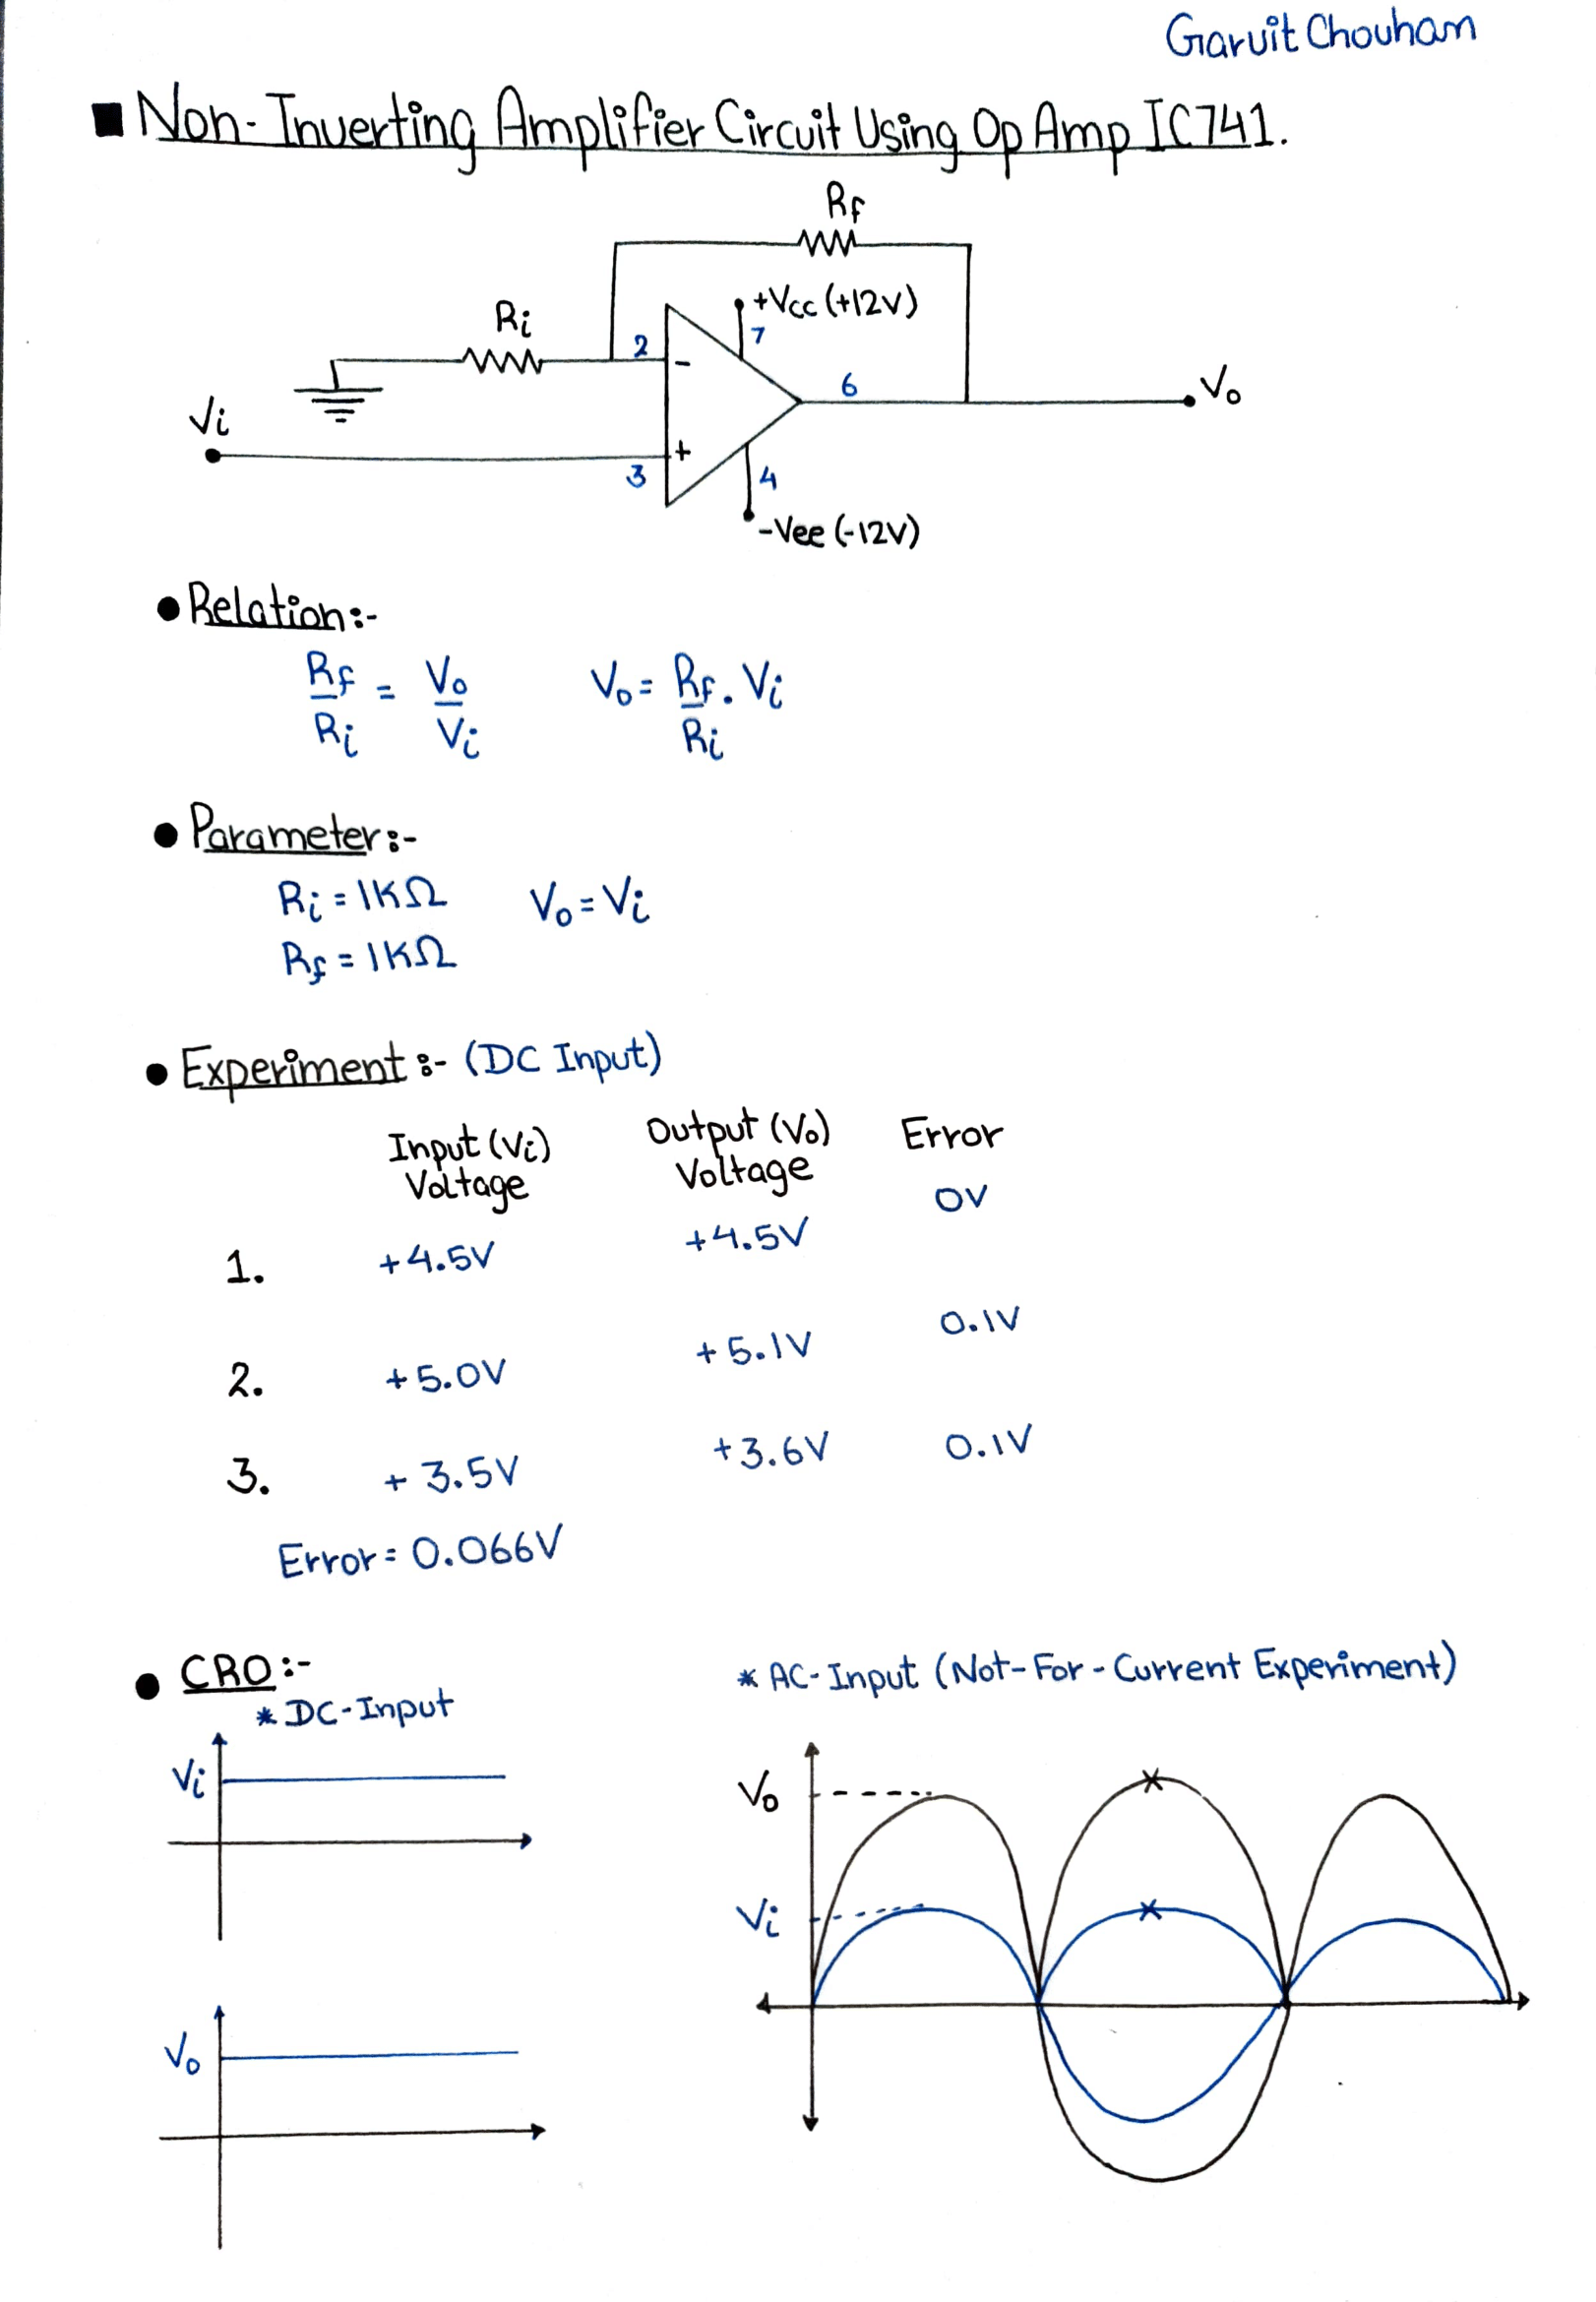 Garvit Chouhan
Non-Inverting Amplifier Circuit Using Op Amp IC741.
Rf
+Vcc (+12V)
Ri
7
2
-
6
Vo
Vi
+
3
4
-Vee (-12V)
Relation:-
Rf/Ri = Vo/Vi Vo = Rf/Ri . Vi
Parameter:-
Ri = 1KΩ Vo = Vi
Rf = 1KΩ
Experiment:- (DC Input)
Input (Vi) Output (Vo) Error
Voltage Voltage
1. +4.5V +4.5V 0V
2. +5.0V +5.1V 0.1V
3. +3.5V +3.6V 0.1V
Error = 0.066V
CRO:-
* DC-Input
* AC-Input (Not-For-Current Experiment)
Vi
Vo
Vo
Vi